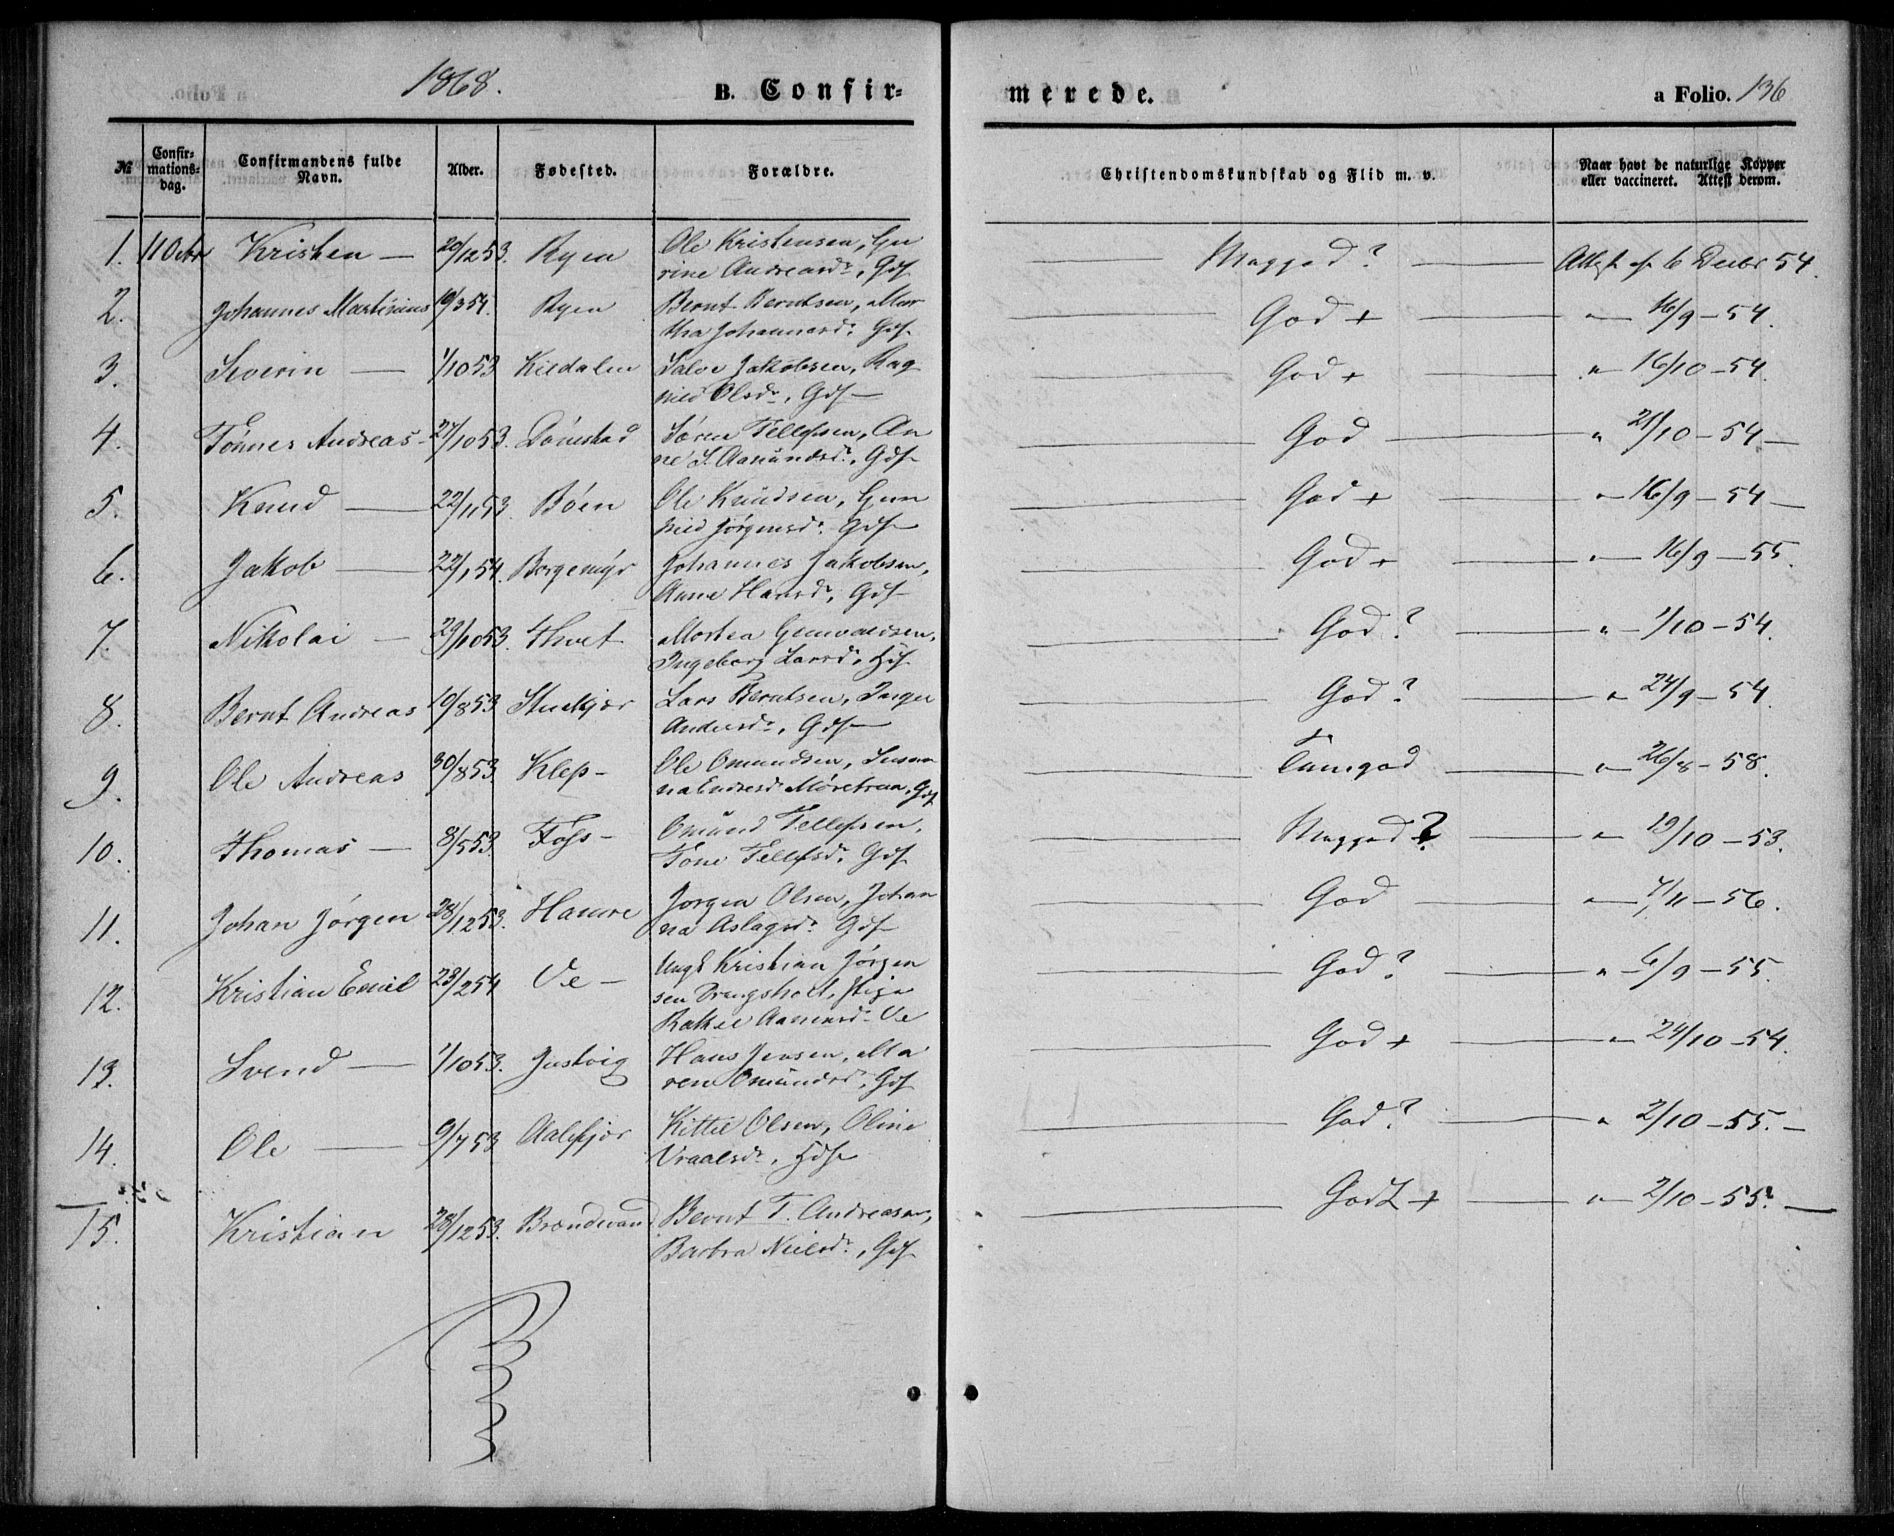 1868.
B. Confir=
merede.
a Folio. 136
№
Confir=
mations=
dag.
Confirmandens fulde
Navn.
Alder.
Fødested.
Forældre.
Christendomskundskab og Flid m. v.
Naar havt de naturlige Kopper
eller vaccineret. Attest derom.
1. 11 Octbr Kristen — 20/12 53. Ryen Ole Kristensen, Gu
rine Andreasd., Gdf Meggod? Attest af 6 Decbr 54.
2. Johannes Martinius 19/3 54. Ryen Bernt Berntsen, Mar
tha Johannesd. Gdf. God + " 16/9 – 54.
3. Severin — 1/10 53 Kildalen Salve Jakobsen, Rag
nild Olsd., Gdf — God + " 16/10 – 54.
4. Tønnes Andreas 27/10 53. Dønestad Søren Tellefsen, An
ne S. Aamundsd., Gdf God " 21/10 – 54 —
5. Knud — 22/11 53. Bøen Ole Knudsen, Gun
nild Jørgensd. Gdf — God + " 16/9 – 54 —
6. Jakob — 22/1 54. Borgemyr Johannes Jakobsen,
Anne Hansd., Gdf God + " 16/9 – 55.
7. Nikolai — 29/10 53. Thvet Morten Gunvaldsen,
Ingeborg Larsd., Hdf God? " 1/10 – 54.
8. Bernt Andreas 19/8 53 Studkjær Lars Berntsen, Inger
Andersd., Gdf — God? " 24/9 – 54.
9. Ole Andreas 30/8 53. Klep – Ole Omundsen, Susan
na Endresd. Møretrøen, Gdf Tamgod " 26/8 – 58.
10. Thomas — 8/5 53. Foss – Omund Tellefsen,
Tone Tellefsd. Gdf Meggod? " 19/10 – 53.
11. Johan Jørgen 28/12 53. Hamre Jørgen Olsen, Johan
na Aslagsd. Gdf God " 7/11 – 56.
12. Kristian Emil 23/2 54 Ve – Ungk Kristian Jørgen
sen Drangsholt, Pige
Rakel Aanensd. Ve God? " 6/9 – 55.
13. Svend — 1/10 53. Justvig Hans Jensen, Ma
ren Omundsd., Gdf God + " 24/10 – 54.
14. Ole — 9/7 53 Aalefjær Kittel Olsen, Oline
Vraalsd., Hdf God? " 2/10 – 55. –
15. Kristian 28/12 53. Brændvand Bernt T. Andreasen,
Barbra Nielsd., Gdf God + " 2/10 – 55. —